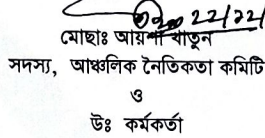 মোছাঃ আয়শা খাতুন
সদস্য, আঞ্চলিক নৈতিকতা কমিটি
ও
উঃ কর্মকর্তা